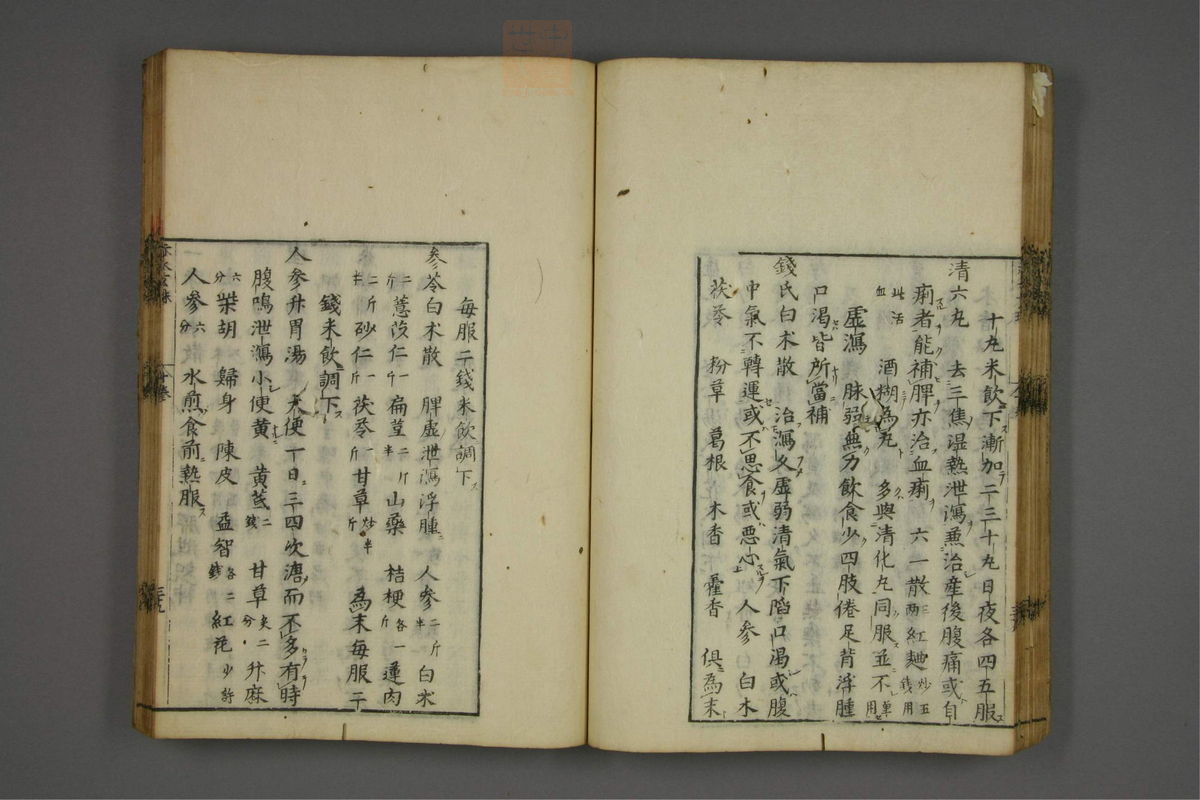 十丸米飲下漸加二三十丸日夜各四五服
清六丸 去三焦湿熱泄瀉兼治産後腹痛或自
痢者能補脾亦治血痢 六一散三両紅麹炒五錢用
此活血 酒糊為丸 多與清化丸同服並不單用
虚瀉 脉弱無力飲食少四肢倦足背浮腫
口渇皆所當補
錢氏白朮散 治瀉久虚弱清氣下陷口渇或腹
中氣不轉運或不思食或悪心 人參 白木
茯苓 粉草 葛根 木香 藿香 俱為末
毎服二錢米飲調下
參苓白朮散 脾虚泄瀉浮腫 人參二斤半 白朮
二斤 薏苡仁一斤 扁荳二斤半 山藥 桔梗各一斤 蓮肉
二斤半 砂仁一斤 茯苓一斤 甘草炒半斤 為末毎服二
錢米飲調下
人參升胃湯 大便一日三四次溏而不多有時
腹鳴泄瀉小便黄 黄芪二錢 甘草炙二分 升麻
六分 柴胡 歸身 陳皮 益智各二錢 紅花少許
人參六分 水煎食前熱服